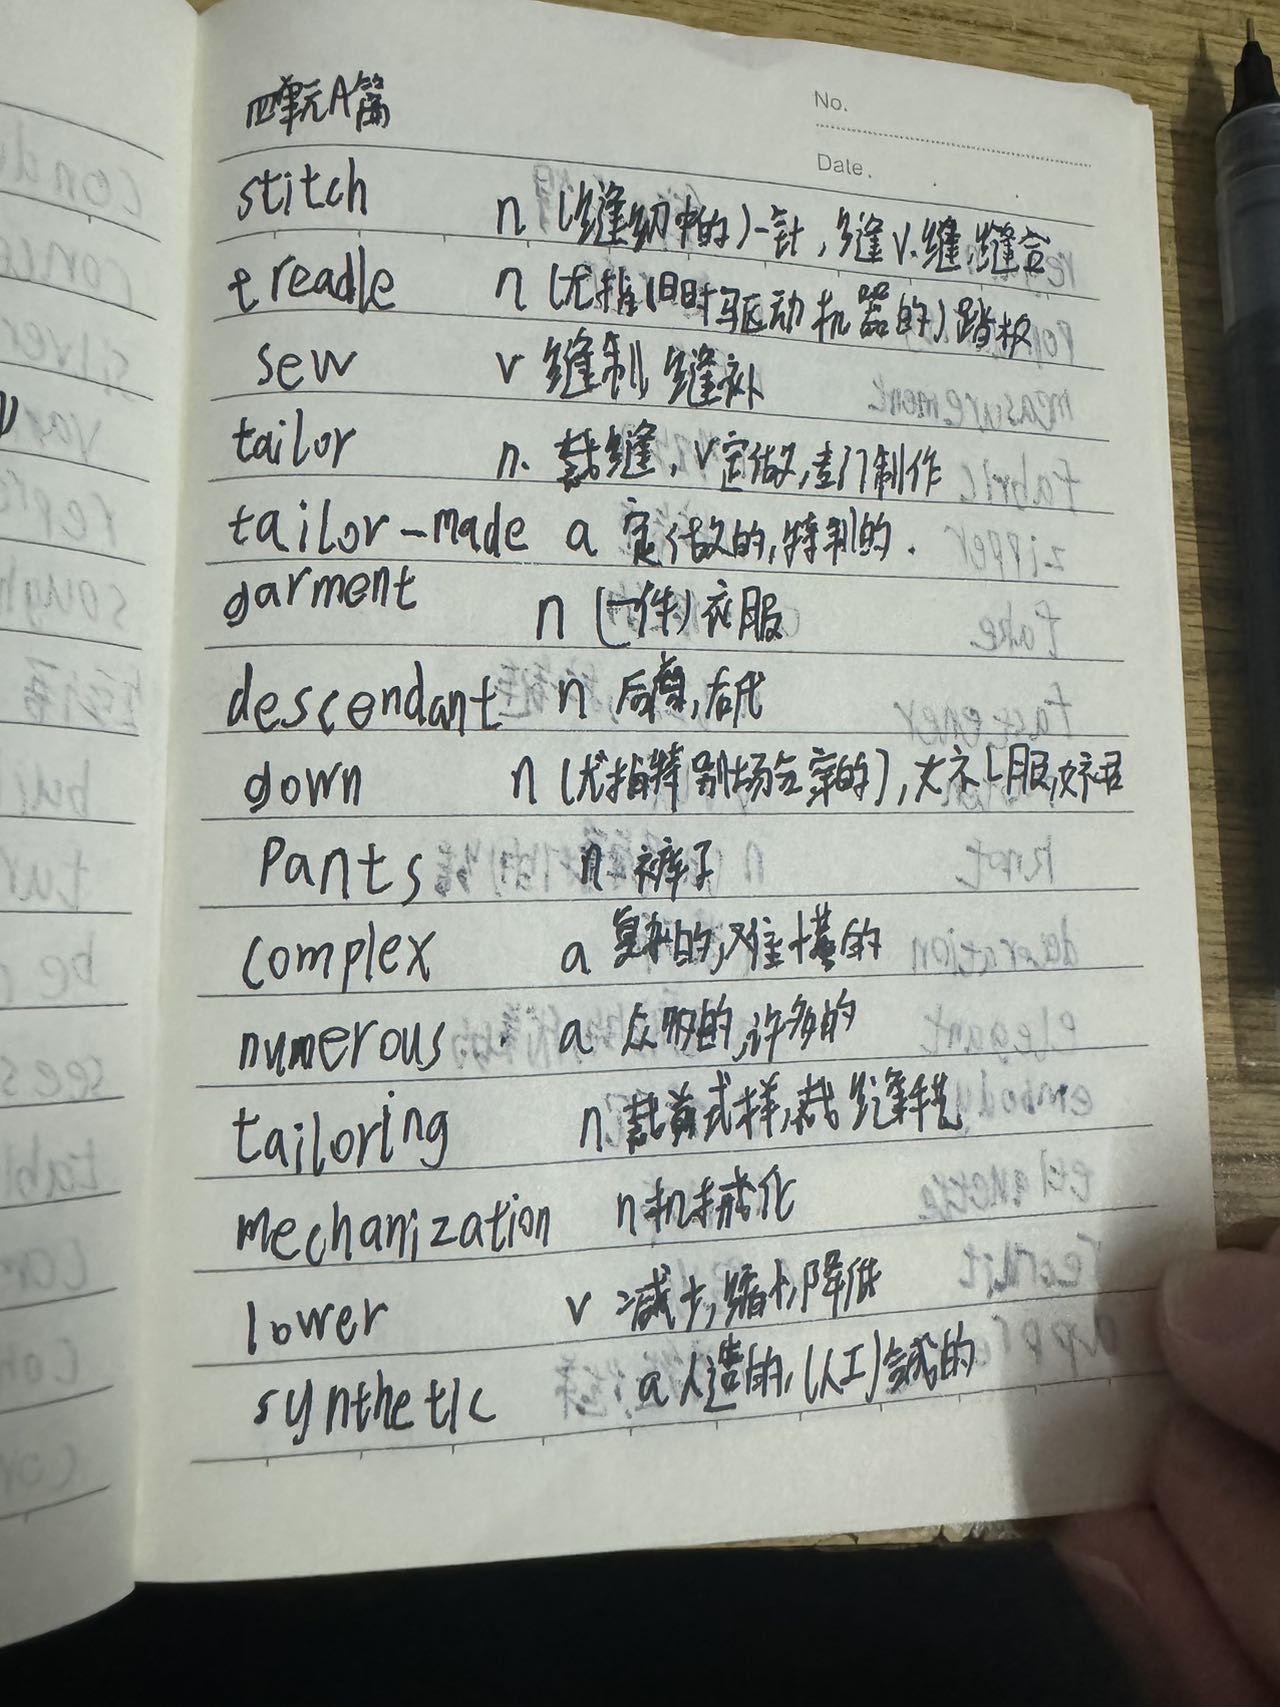 四单元A篇
No.
Date.
stitch n (缝纫中的)一针,缝 v.缝,缝合
treadle n (尤指旧时驱动机器的)踏板
sew v 缝制 缝补
tailor n. 裁缝, v定做,专门制作
tailor-made a 定做的,特制的.
garment n (一件)衣服
descendant n 后裔,后代
gown n (尤指特别场合穿的),女礼服
Pants n 裤子
complex a 复杂的,难懂的
numerous a 众多的,许多的
tailoring n 裁剪式样,裁缝手艺
mechanization n 机械化
lower v 减少,缩小,降低
synthetic a 人造的,(人工)合成的